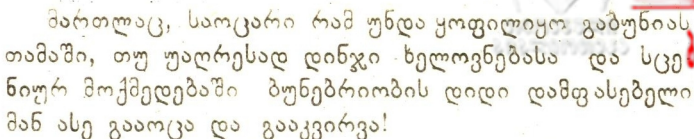 მართლაც, საოცარი რამ უნდა ყოფილიყო გაბუნიას
თამაში, თუ უაღრესად დინჯი ხელოვნებასა და სცე
ნიურ მოქმედებაში ბუნებრიობის დიდი დამფასებელი
მან ასე გააოცა და გააკვირვა!